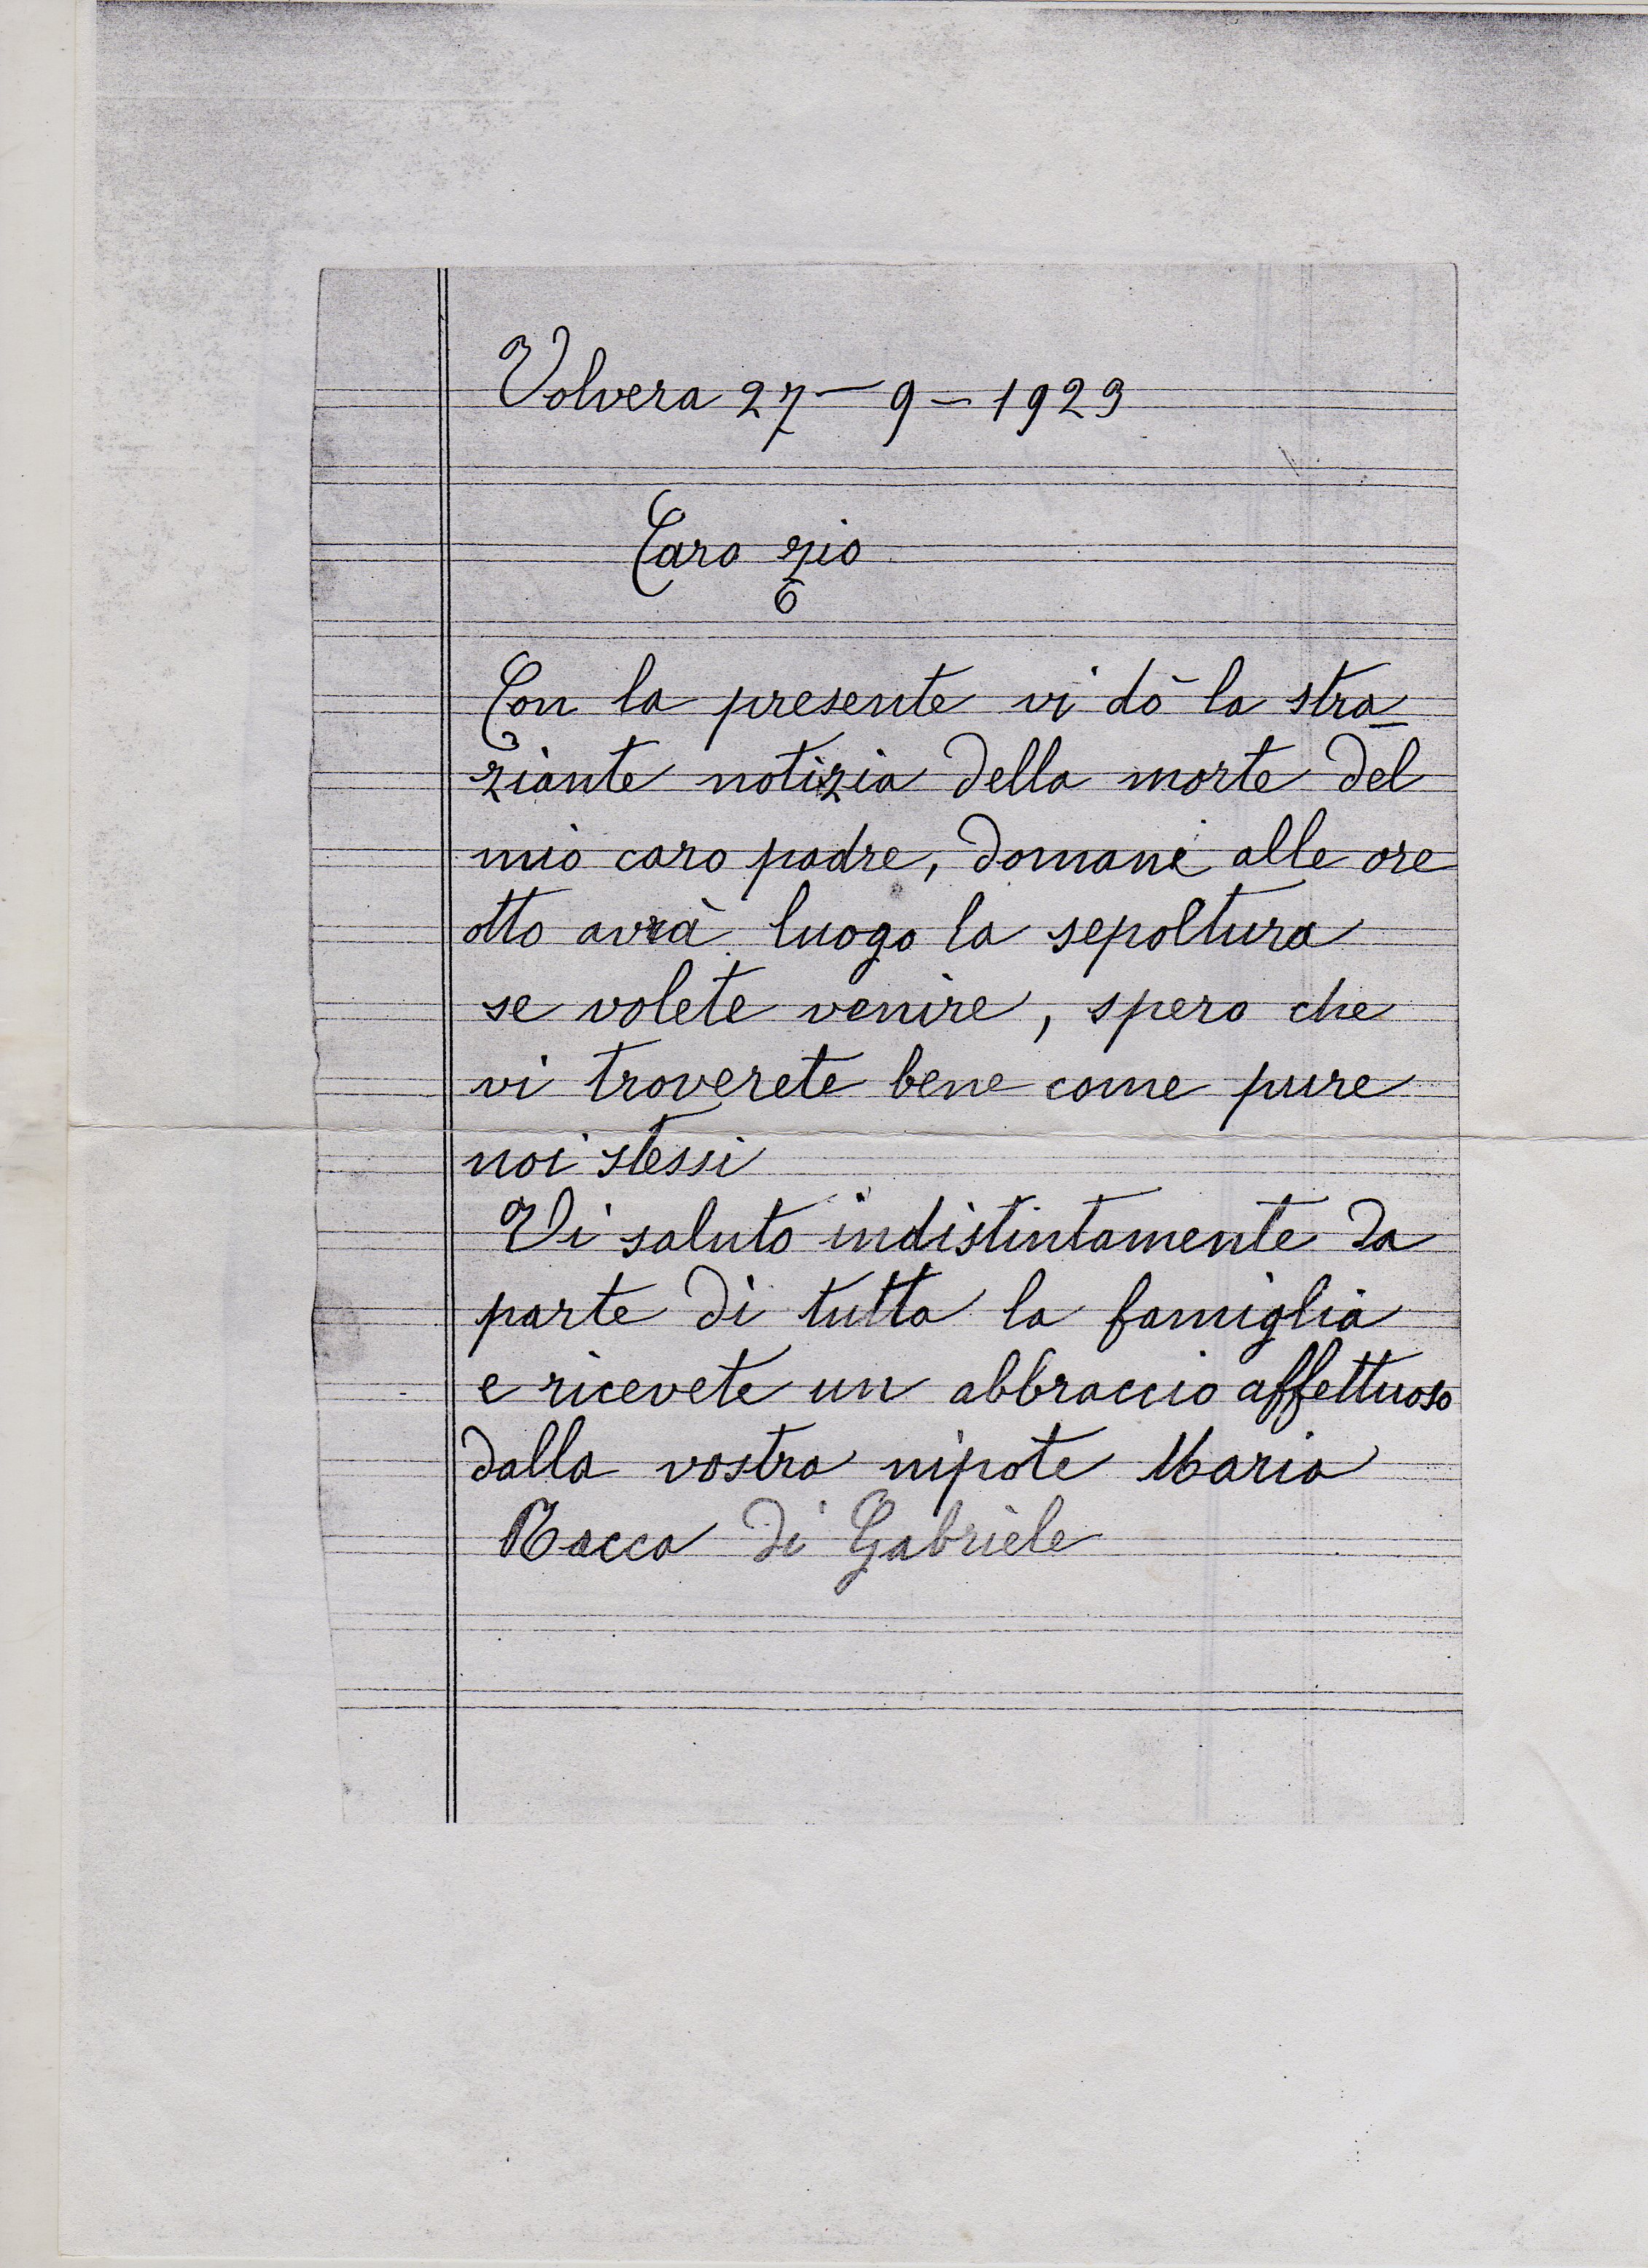 Volvera 27 - 9 - 1929
Caro zio
Con la presente vi dò la stra-
ziante notizia della morte del
mio caro padre, domani alle ore
otto avrà luogo la sepoltura
se volete venire, spero che
vi troverete bene come pure
noi stessi
Vi saluto indistintamente da
parte di tutta la famiglia
e ricevete un abbraccio affettuoso
dalla vostra nipote Maria
Racca di Gabriele